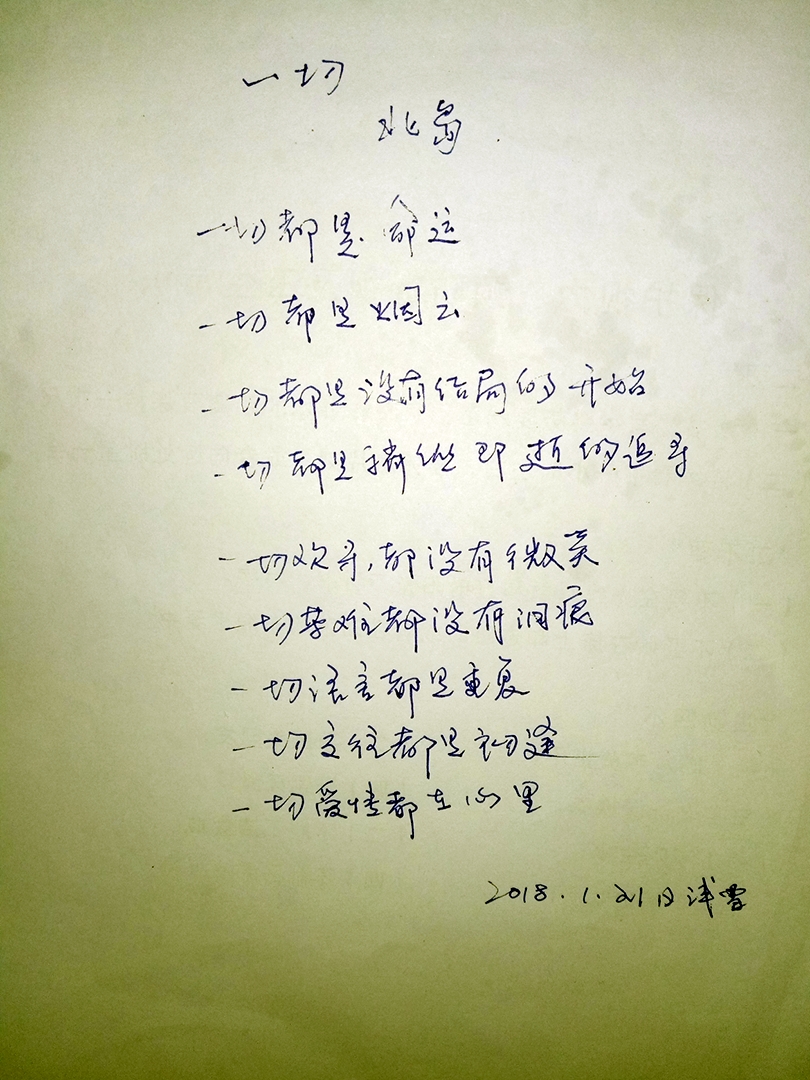 一切
北岛
一切都是命运
一切都是烟云
一切都是没有结局的开始
一切都是稍纵即逝的追寻
一切欢寻,都没有微笑
一切苦难都没有泪痕
一切语言都是重复
一切交往都是初逢
一切爱情都在心里
2018.1.21日浅雪